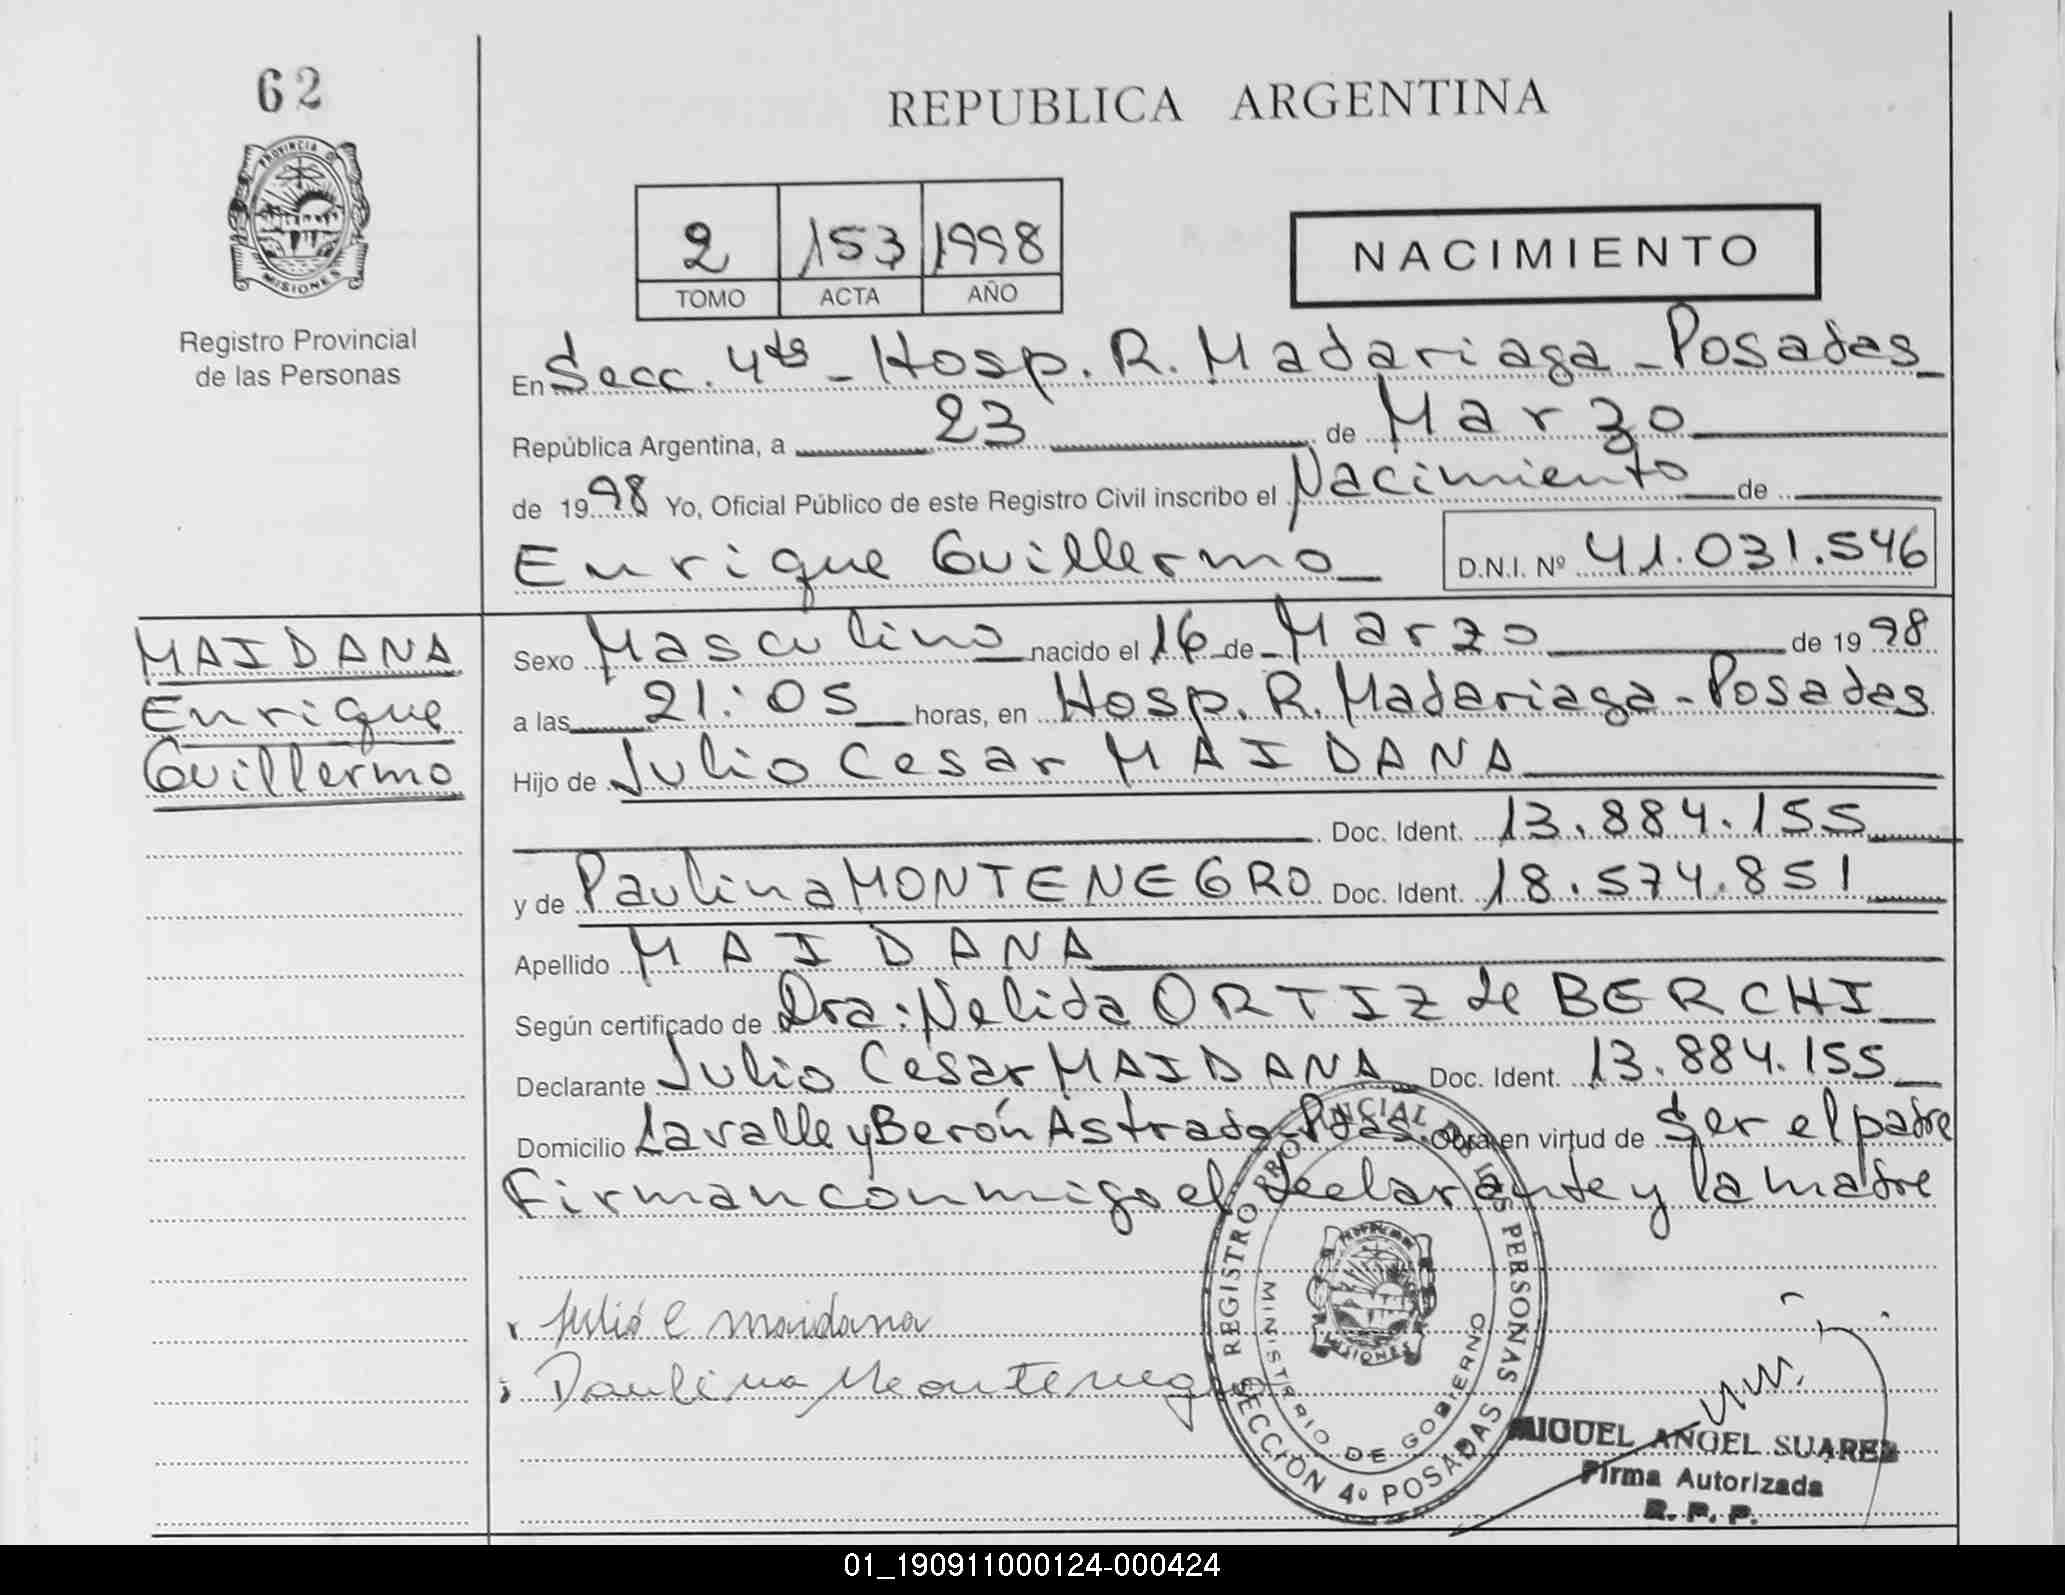 62
REPUBLICA ARGENTINA
PROVINCIA D
MISIONES
Registro Provincial
de las Personas
2 153 1998
TOMO ACTA AÑO
NACIMIENTO
En Secc. 4ta - Hosp. R. Madariaga - Posadas
República Argentina, a 23 de Marzo
de 1998 Yo, Oficial Público de este Registro Civil inscribo el Nacimiento de
Enrique Guillermo D.N.I. Nº 41.031.546
MAIDANA
Enrique
Guillermo
Sexo Masculino nacido el 16 de Marzo de 1998
a las 21:05 horas, en Hosp. R. Madariaga - Posadas
Hijo de Julio Cesar MAIDANA
Doc. Ident. 13.884.155
y de Paulina MONTENEGRO Doc. Ident. 18.574.851
Apellido MAIDANA
Según certificado de Dra: Nelida ORTIZ de BERCHI
Declarante Julio Cesar MAIDANA Doc. Ident. 13.884.155
Domicilio Lavalle y Berón Astrada - Pdas. Obra en virtud de Ser el padre
Firman conmigo el declarante y la madre
Julio C maidana
Paulina Monteneg
REGISTRO PROVINCIAL DE LAS PERSONAS
MINISTERIO DE GOBIERNO
MISIONES
SECCIÓN 4º POSADAS
MIGUEL ANGEL SUAREZ
Firma Autorizada
R. P. P.
01_190911000124-000424